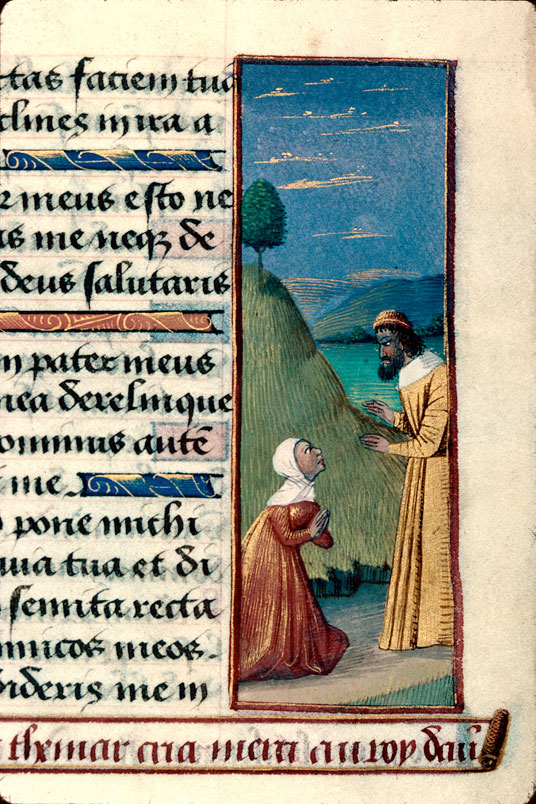 ctas faciem tua
clines in ira a
r meus esto ne
as me neq₃ de
deus salutaris
m pater meus
mea derelinque
ominus autē
me
pone michi
via tua et di
semita recta
inimicos meos
dideris me in
themar cria merci au roy dau